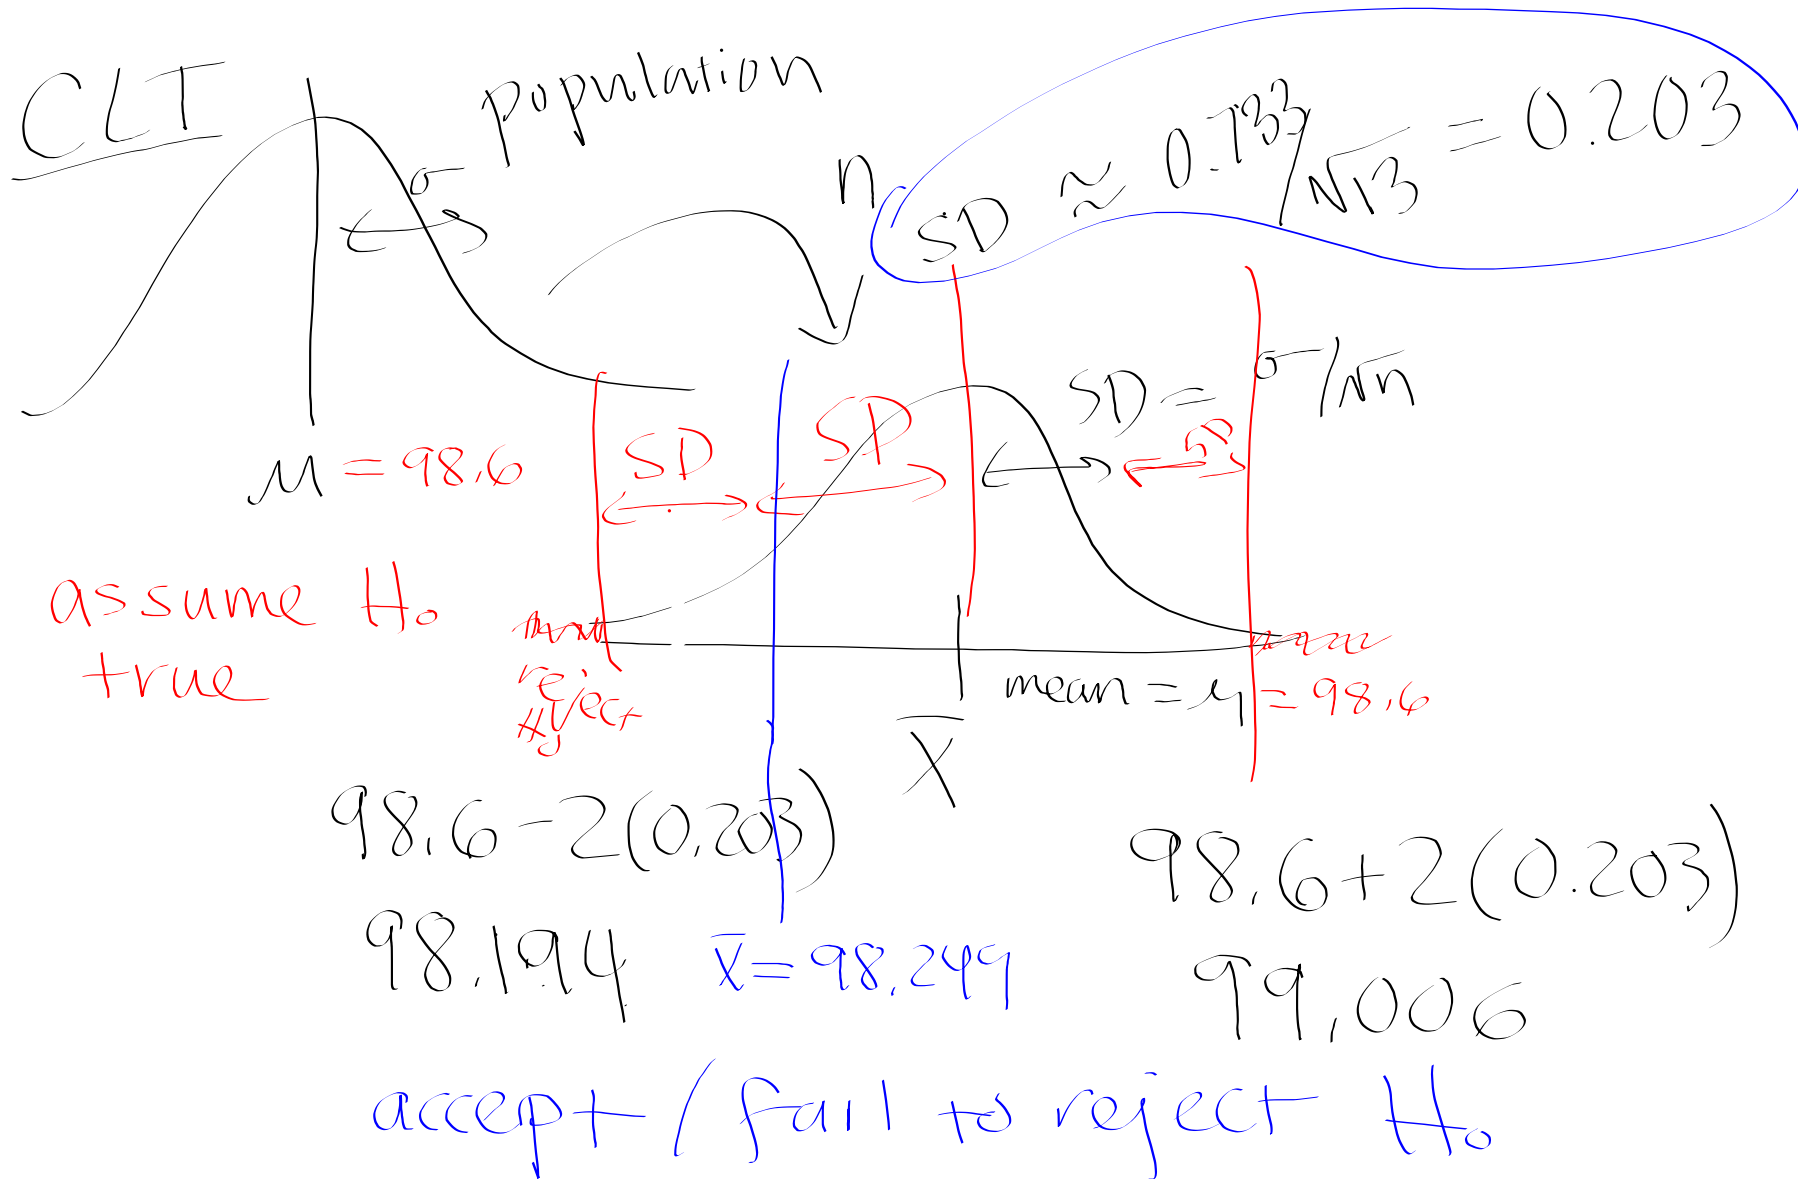 CLT
population
σ
n
SD ≈ 0.733/√13 = 0.203
μ = 98.6
SD
SD
SD = σ/√n
SD
assume H₀
true
reject
H₀
mean = μ = 98.6
X̄
98.6-2(0.203)
98.6+2(0.203)
98.194
x̄ = 98.249
99.006
accept / fail to reject H₀